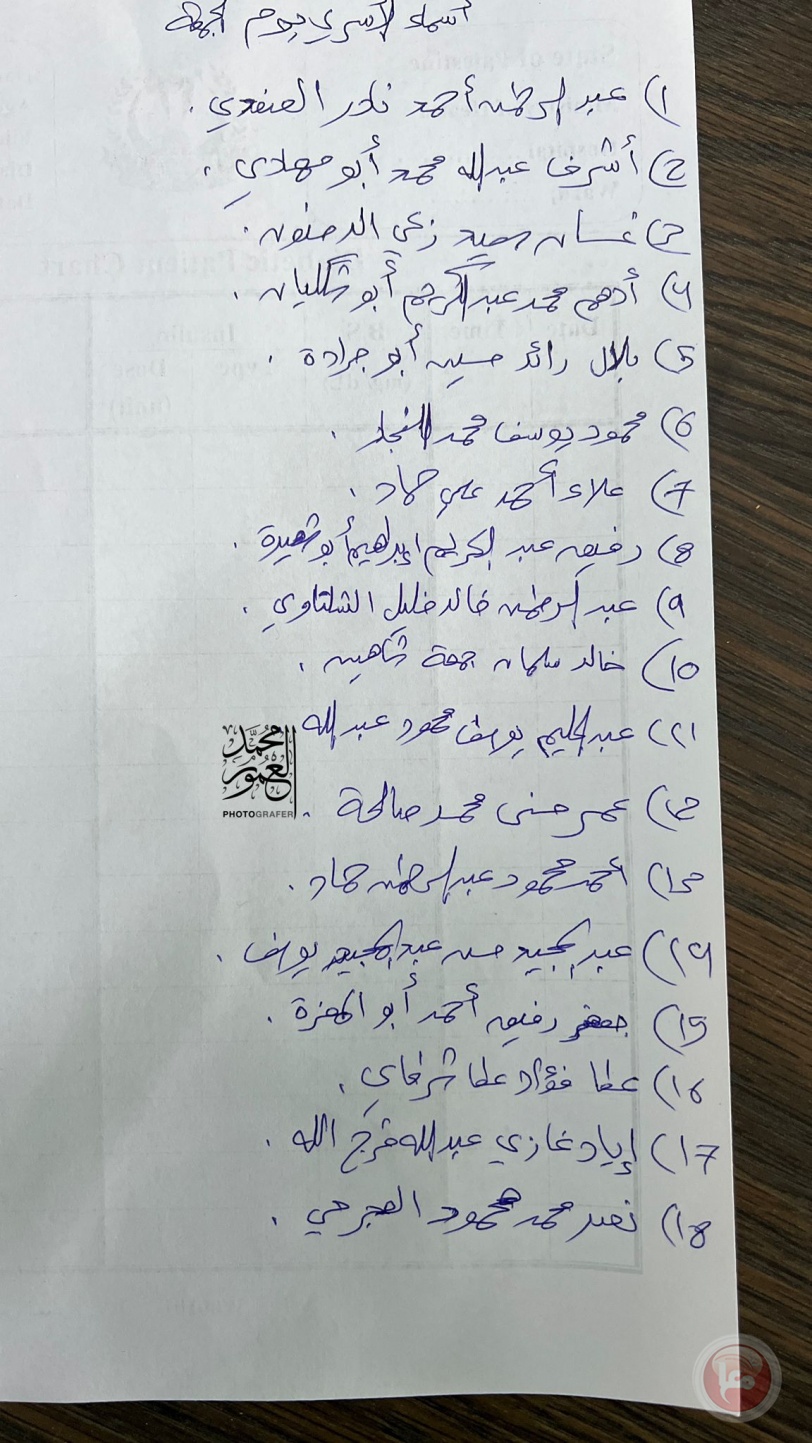 أسماء الأسرى يوم الجمعة
1) عبد الرحمن أحمد نادر الصفدي .
2) أشرف عبدالله محمد أبو مهادي .
3) غسان زكي الدحنون .
4) أدهم محمد عبدالرحيم أبو شكليان .
5) بلال رائد حسين أبو جرادة .
6) محمود يوسف محمد النجار .
7) علاء أحمد علي حماد .
8) رفيق عبد الكريم إبراهيم أبو شعيرة .
9) عبد الرحمن خالد خليل الشلتاوي .
10) خالد سلمان جمعة شاهين .
11) عبدالحليم يوسف محمود عبدالله
محمد العمور
PHOTOGRAFER
12) عمر حسني محمد صالحة .
13) أحمد محمود عبدالرحمن حماد .
14) عبد المجيد حسن عبدالمجيد يوسف .
15) جعفر رفيق أحمد أبو المعزة .
16) عطا فؤاد عطا شرفاي .
17) إياد غازي عبدالله فرج الله .
18) نصر محمد محمود
State of Palestine
Diabetic Patient Chart
Date
Time
B.S
Insulin
Type
Dose
(unit)
معا